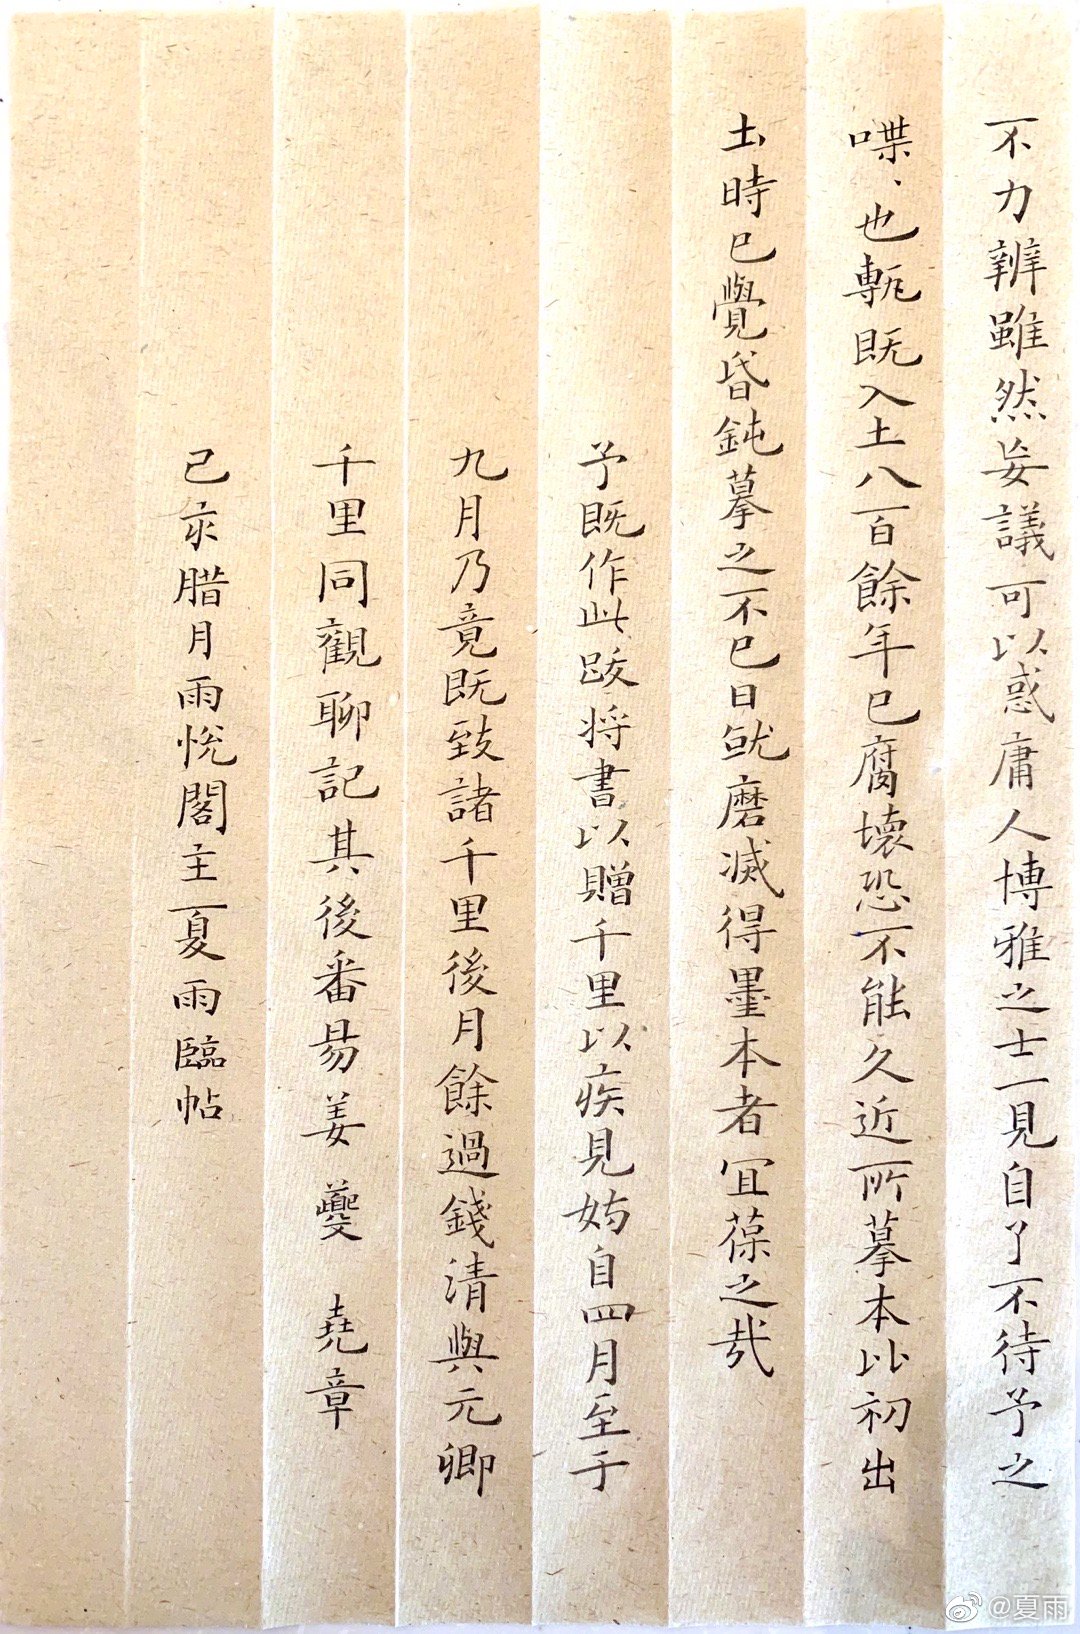 不力辨雖然妄議可以惑庸人博雅之士一見自了不待予之
喋、也甎既入土八百餘年已腐壞恐不能久近所摹本比初出
土時已覺昏鈍摹之不已日就磨滅得墨本者宜葆之哉
予既作此跋将書以贈千里以疾見妨自四月至于
九月乃竟既致諸千里後月餘過錢清與元卿
千里同觀聊記其後番昜姜夔 堯章
己亥腊月雨悅閣主夏雨臨帖
@夏雨